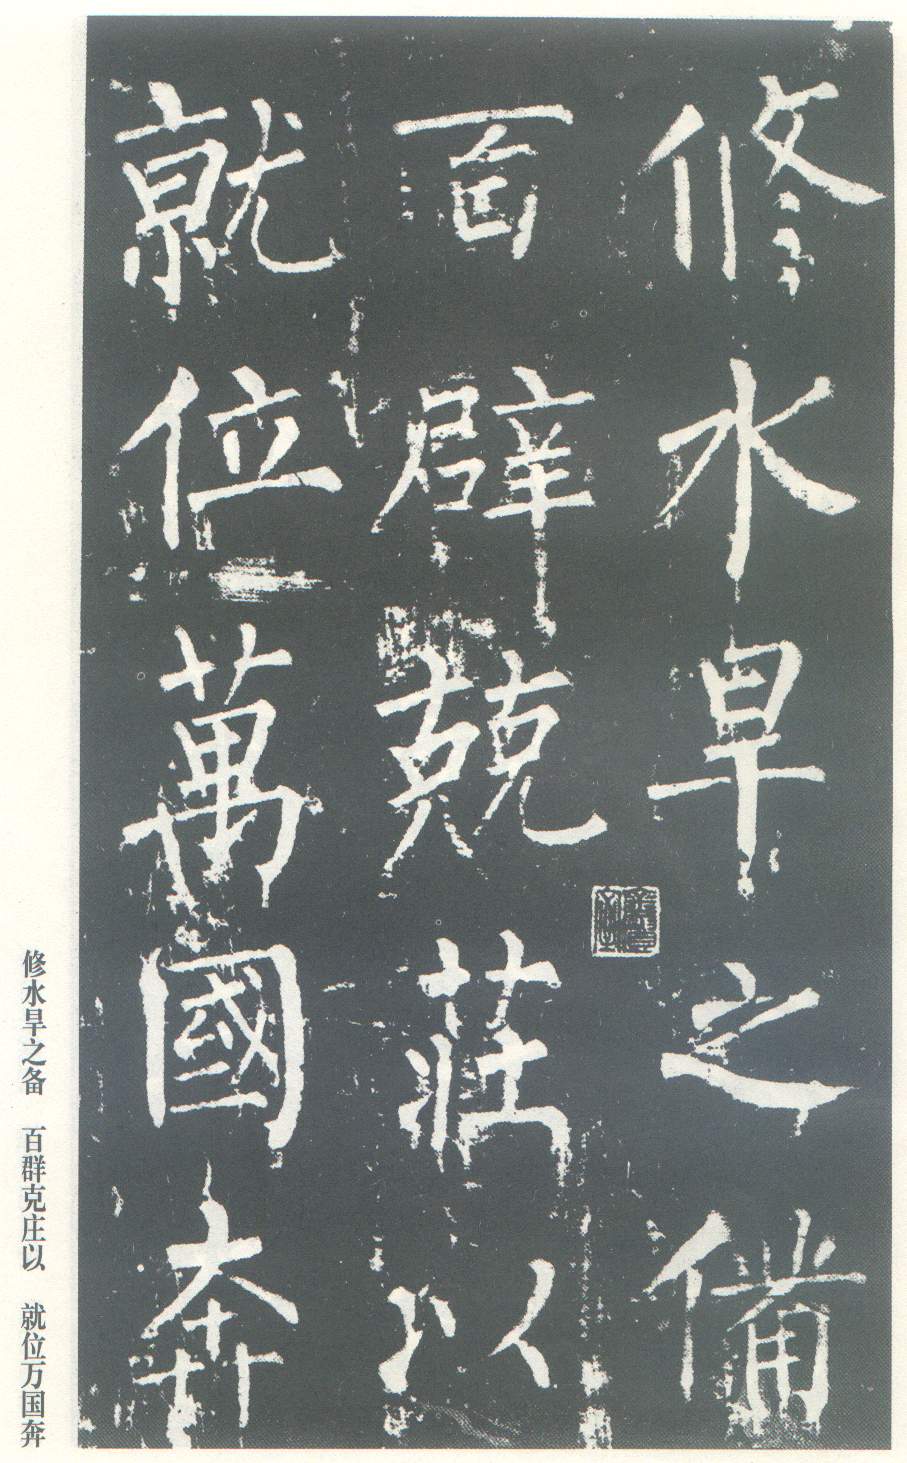 修水旱之備
百辟兢莊以
就位萬國奔
修水旱之备　百群克庄以　就位万国奔